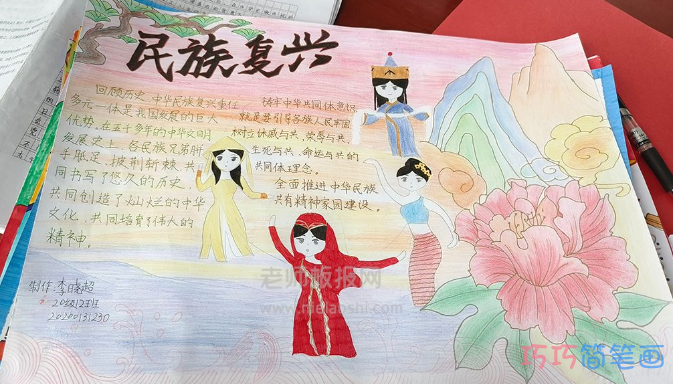 民族复兴
回顾历史,中华民族复兴重任
多元一体是我国发展的巨大
优势,在五千多年的中华文明
发展史上,各民族兄弟所
手胝足,披荆斩棘,共
同书写了悠久的历史,
共同创造了灿烂的中华
文化,共同培育了伟大的
精神。
铸牢中华共同体意识,
就是要引导各族人民牢固
树立休戚与共、荣辱与共、
生死与共、命运与共的
共同体理念。
全面推进中华民族
共有精神家园建设。
制作:李晓超
老师板报网
www.nielaoshi.com
巧巧简笔画